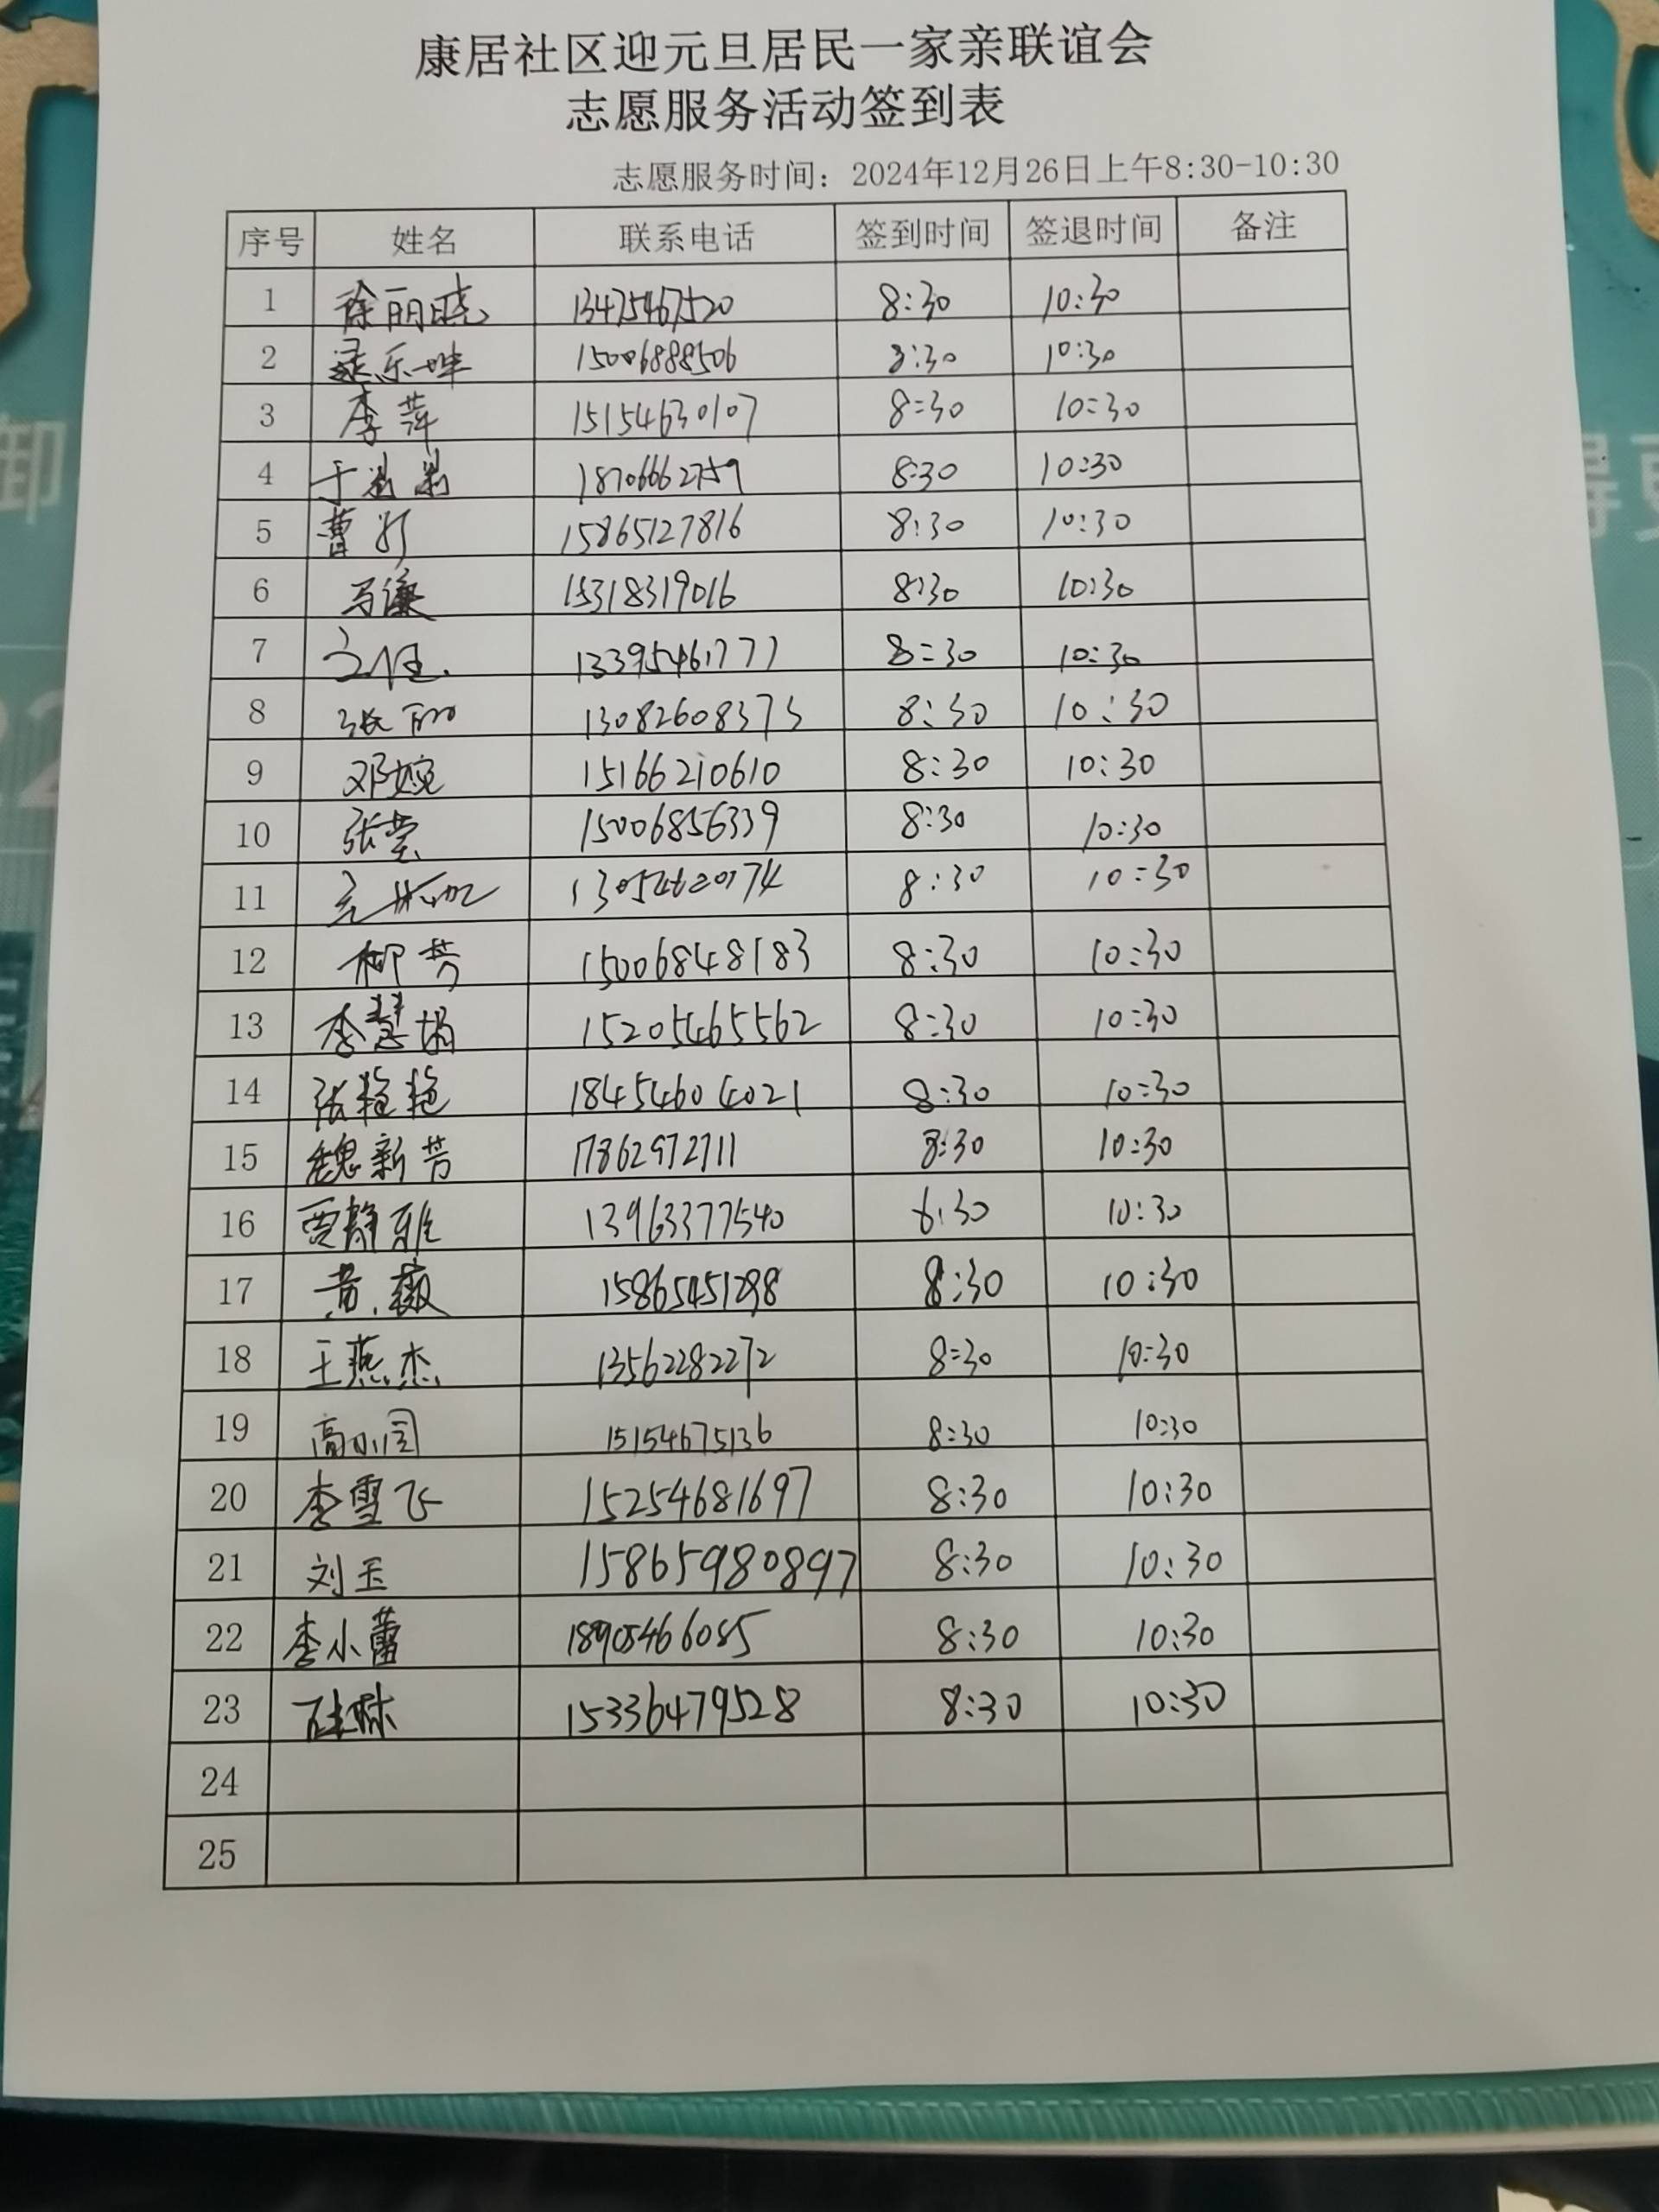 康居社区迎元旦居民一家亲联谊会
志愿服务活动签到表
志愿服务时间: 2024年12月26日上午8:30-10:30
序号 姓名 联系电话 签到时间 签退时间 备注
1 徐丽晓 13475467520 8:30 10:30
2 15006888506 8:30 10:30
3 李萍 15154630107 8:30 10:30
4 于 18706662759 8:30 10:30
5 曹 15865127816 8:30 10:30
6 马 15318319016 8:30 10:30
7 13395461777 8:30 10:30
8 张丽 13082608373 8:30 10:30
9 邓婉 15166210610 8:30 10:30
10 张莹 15006856339 8:30 10:30
11 8:30 10:30
12 柳芳 15006848183 8:30 10:30
13 李慧娟 15205465562 8:30 10:30
14 张艳艳 18454604021 8:30 10:30
15 魏新芳 17862972711 8:30 10:30
16 贾静雅 13963377540 6:30 10:30
17 黄薇 15865451298 8:30 10:30
18 王燕杰 13562282272 8:30 10:30
19 高小闫 15154675136 8:30 10:30
20 李雪飞 15254681697 8:30 10:30
21 刘玉 15865980897 8:30 10:30
22 李小蕾 18905466085 8:30 10:30
23 15336479528 8:30 10:30
24
25
御
得更
22